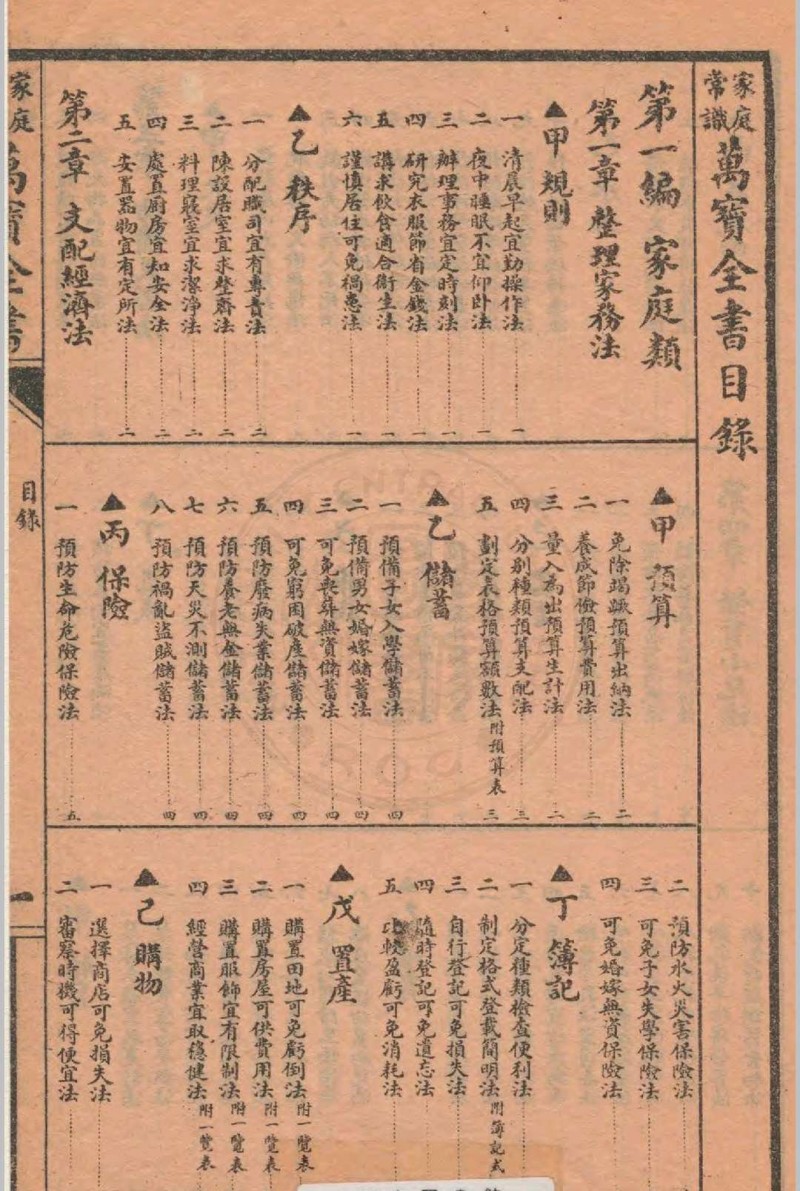 家庭常識萬寶全書目錄
第一編 家庭類
第一章 整理家務法
▲甲 規則
一 清晨早起宜勤操作法 一
二 夜中睡眠不宜仰卧法 一
三 辦理事務宜定時刻法 一
四 研究衣服節省金錢法 一
五 講求飲食適合衛生法 一
六 謹慎居住可免禍患法 一
▲乙 秩序
一 分配職司宜有專責法 二
二 陳設居室宜求整齊法 二
三 料理寢室宜求潔淨法 二
四 處置厨房宜知安全法 二
五 安置器物宜有定所法 二
第二章 支配經濟法
▲甲 預算
一 免除竭蹶預算出納法 二
二 養成節儉預算費用法 二
三 量入為出預算生計法 二
四 分別種類預算支配法 三
五 劃定表格預算額數法附預算表 三
▲乙 儲蓄
一 預備子女入學儲蓄法 四
二 預備男女婚嫁儲蓄法 四
三 可免喪葬無資儲蓄法 四
四 可免窮困破產儲蓄法 四
五 預防廢病失業儲蓄法 四
六 預防養老無金儲蓄法 四
七 預防天災不測儲蓄法 四
八 預防禍亂盜賊儲蓄法 四
▲丙 保險
一 預防生命危險保險法 五
二 預防水火災害保險法
三 可免子女失學保險法
四 可免婚嫁無資保險法
▲丁 簿記
一 分定種類檢查便利法
二 制定格式登載簡明法附簿記式
三 自行登記可免損失法
四 隨時登記可免遺忘法
五 比較盈虧可免消耗法
▲戊 置產
一 購置田地可免虧倒法附一覽表
二 購置房屋可供費用法附一覽表
三 購置服飾宜有限制法附一覽表
四 經營商業宜取穩健法附一覽表
▲己 購物
一 選擇商店可免損失法
二 審察時機可得便宜法
家庭 萬寶全書
目錄
一